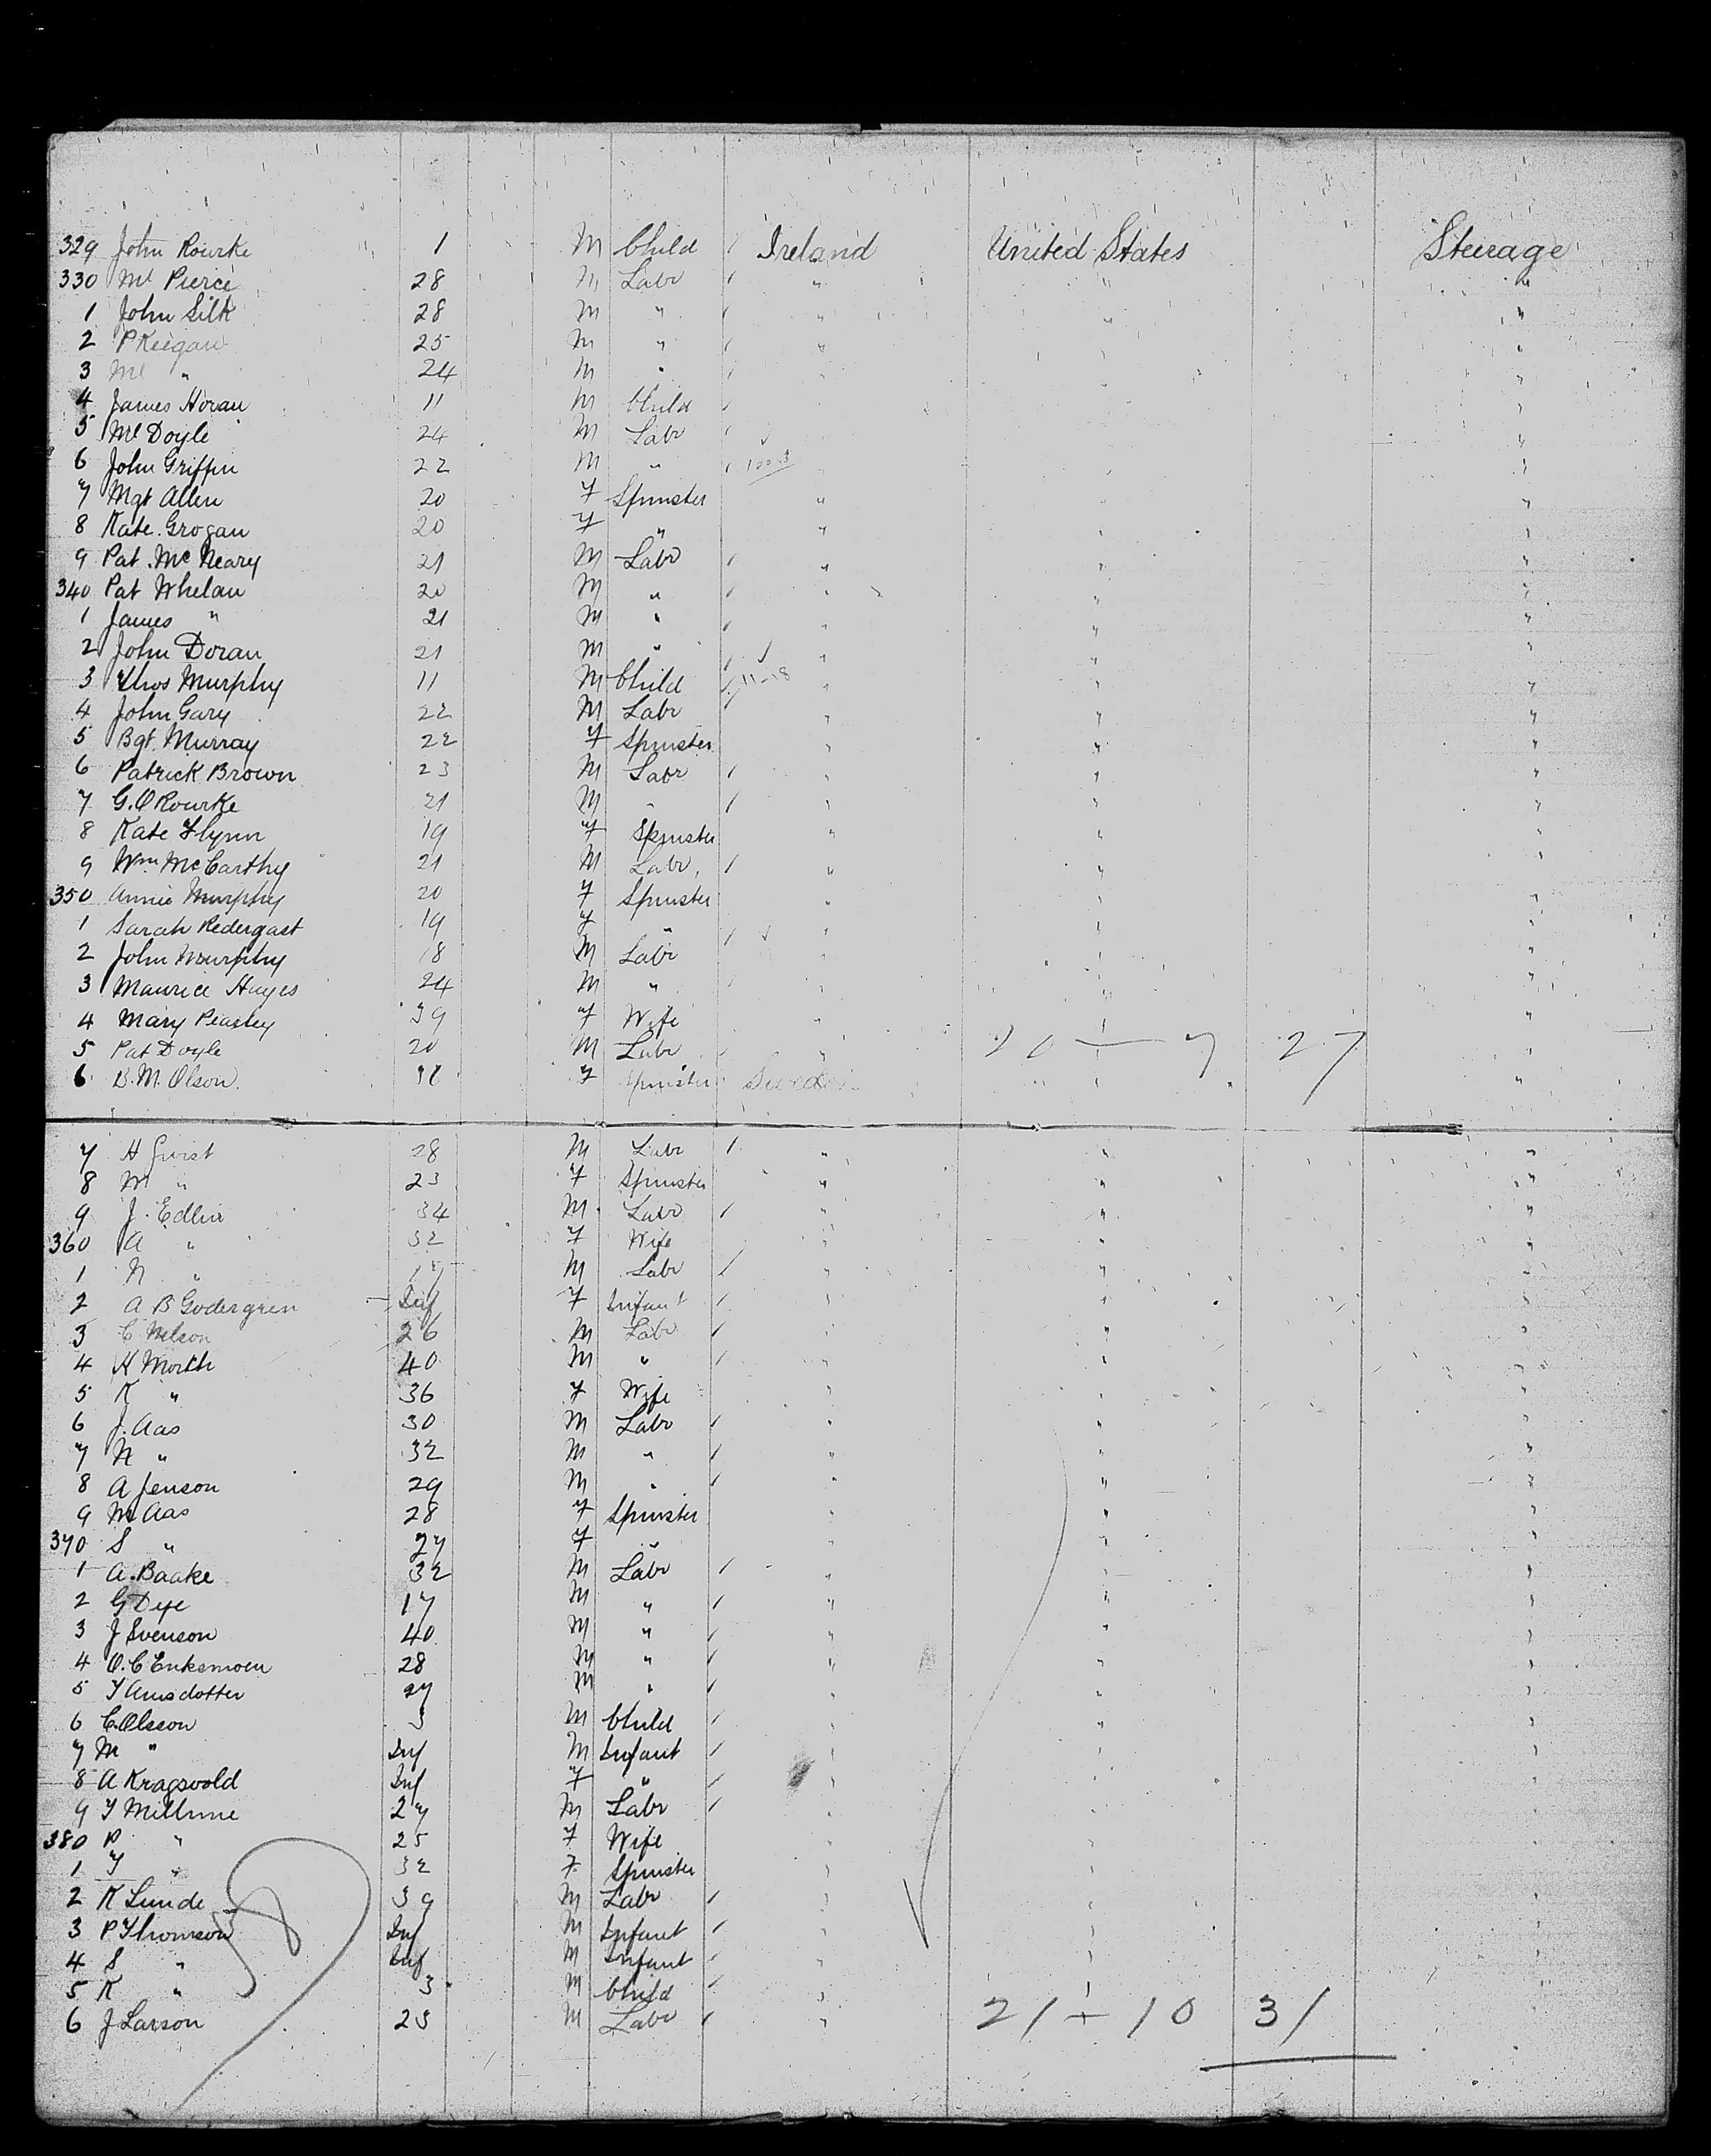 329 John Rourke 1 M Child Ireland United States Steerage
330 Ml Pierce 28 M Labr " " "
1 John Silk 28 M " " " "
2 P Keegan 25 M " " " "
3 Ml " 24 M " " " "
4 James Horan 11 M Child " " "
5 Ml Doyle 24 M Labr " "
6 John Griffin 22 M " " " "
7 Mgt Allen 20 F Spinster " " "
8 Kate Grogan 20 F " " " "
9 Pat. Mc Neary 21 M Labr " " "
340 Pat Whelan 20 M " " " "
1 James " 21 M " " " "
2 John Doran 21 M " " " "
3 Thos Murphy 11 M Child 11-18 " " "
4 John Gary 22 M Labr " " "
5 Bgt. Murray 22 F Spinster " " "
6 Patrick Brown 23 M Labr " " "
7 G. O Rourke 21 M " " " "
8 Kate Flynn 19 F Spinster " " "
9 Wm. McCarthy 21 M Labr " " "
350 Annie Murphy 20 F Spinster " " "
1 Sarah Pedergast 19 F " " " "
2 John Murphy 18 M Labr " " "
3 Maurice Hayes 24 M " " " "
4 Mary 39 F Wife " " "
5 Pat Doyle 20 M Labr " 20 — 7 27 "
6 B. M. Olson F Spinster Sweden " "
7 H 28 M Labr " " "
8 M " 23 F Spinster " " "
9 J. Edlin 34 M Labr " " "
360 A " 32 F Wife " " "
1 N " M Labr " " "
2 A B Godergren Inf F Infant " " "
3 C Nelson 26 M Labr " " "
4 H Morth 40 M " " " "
5 K " 36 F Wife " " "
6 J. Aas 30 M Labr " " "
7 N " 32 M " " " "
8 A Jenson 29 M " " " "
9 M Aas 28 F Spinster " " "
370 S " 27 F " " " "
1 A. Baake 32 M Labr " " "
2 G Dye 17 M " " " "
3 J Svenson 40 M " " " "
4 O. C Enksmoen 28 M " " " "
5 T Amsdotter 27 M " " " "
6 C. Olsson 3 M Child " " "
7 M " Inf M Infant " " "
8 A Kragsvold Inf F " " " "
9 T Millrine 27 M Labr " " "
380 P " 25 F Wife " " "
1 T " 32 F Spinster " " "
2 K Lunde 39 M Labr " " "
3 P Thomson Inf M Infant " " "
4 S " Inf M Infant " " "
5 K " 3 M Child " " "
6 J Larson 25 M Labr " 21 — 10 31 "